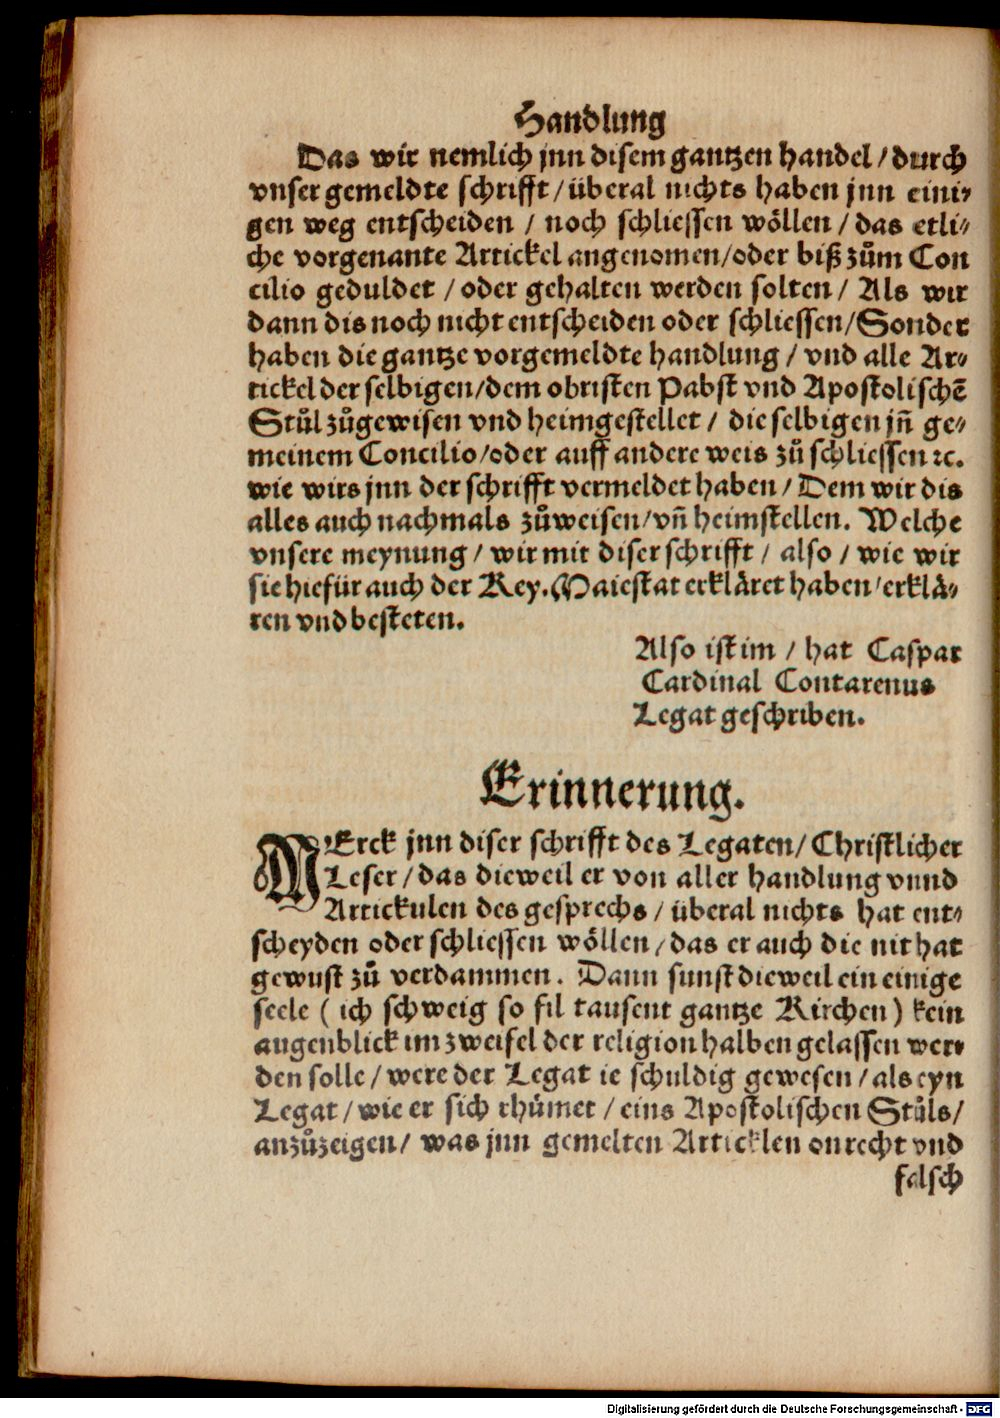 Handlung
Das wir nemlich jnn disem gantzen handel / durch
vnser gemeldte schrifft / überal nichts haben jnn eini⸗
gen weg entscheiden / noch schliessen wöllen / das etli⸗
che vorgenante Artickel angenomen / oder biß zům Con
cilio geduldet / oder gehalten werden solten / Als wir
dann dis noch nicht entscheiden oder schliessen / Sonder
haben die gantze vorgemeldte handlung / vnd alle Ar⸗
tickel der selbigen / dem obristen Pabst vnd Apostolischē
Stůl zůgewisen vnd heimgestellet / die selbigen jn̄ ge⸗
meinem Concilio / oder auff andere weis zů schliessen ꝛc.
wie wirs jnn der schrifft vermeldet haben / Dem wir dis
alles auch nachmals zůweisen / vn̄ heimstellen. Welche
vnsere meynung / wir mit diser schrifft / also / wie wir
sie hiefür auch der Key. Maiestat erkläret haben / erklä⸗
ren vnd besteten.
Also ist im / hat Caspar
Cardinal Contarenus
Legat geschriben.
Erinnerung.
MErck jnn diser schrifft des Legaten / Christlicher
Leser / das dieweil er von aller handlung vnnd
Artickulen des gesprechs / überal nichts hat ent⸗
scheyden oder schliessen wöllen / das er auch die nit hat
gewust zů verdammen. Dann sunst dieweil ein einige
seele ( ich schweig so fil tausent gantze Kirchen ) kein
augenblick im zweifel der religion halben gelassen wer⸗
den solle / were der Legat ie schuldig gewesen / als eyn
Legat / wie er sich rhümet / eins Apostolischen Stůls /
anzůzeigen / was jnn gemelten Articklen onrecht vnd
falsch
Digitalisierung gefördert durch die Deutsche Forschungsgemeinschaft - DFG